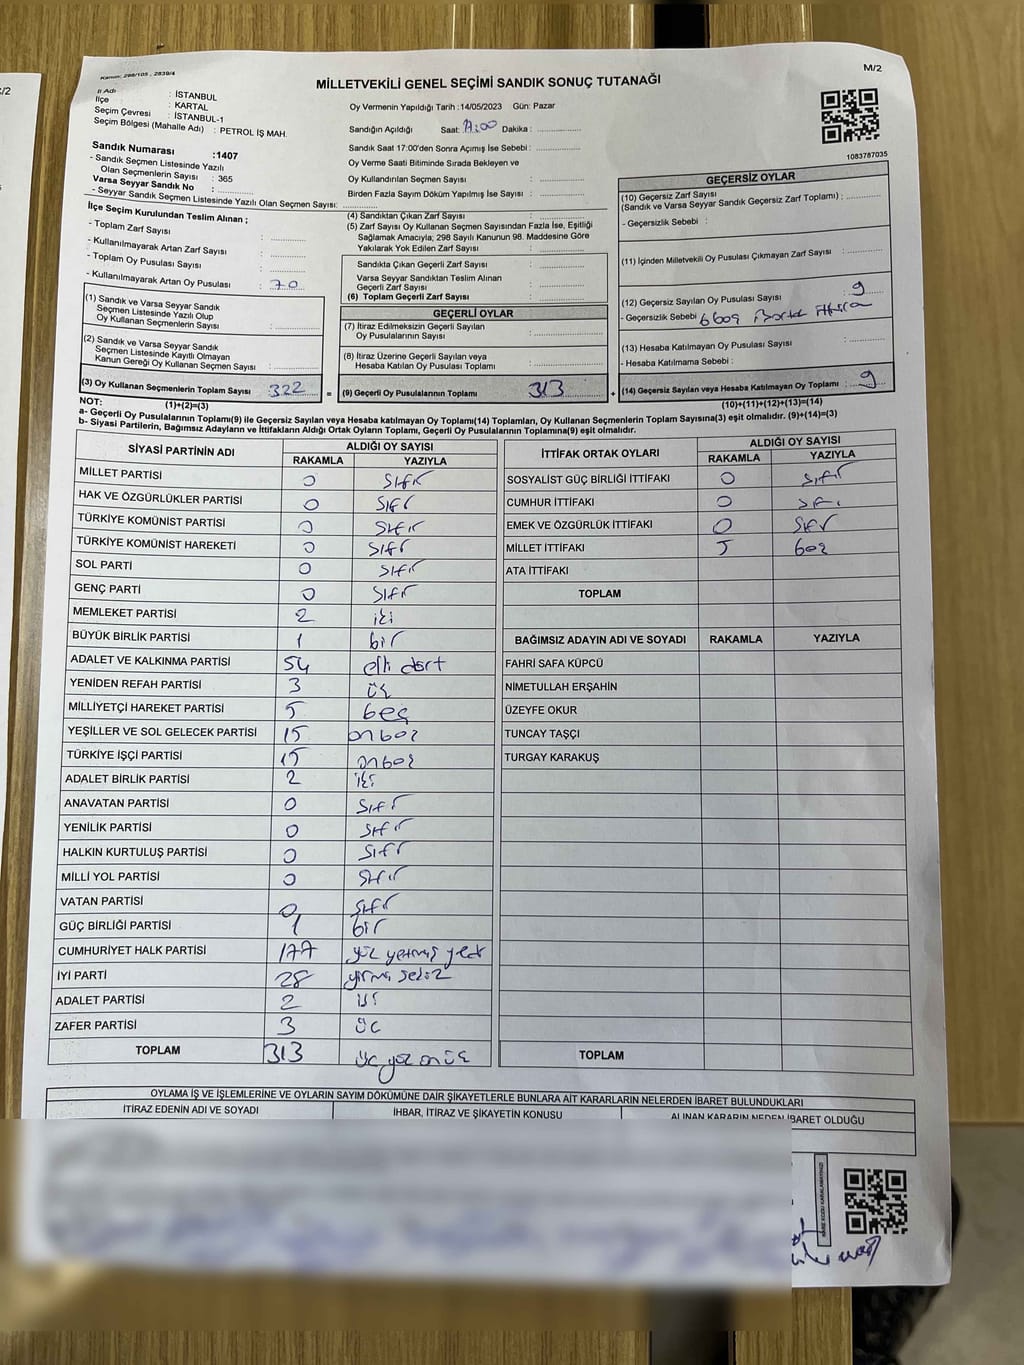 Kanun; 298/105 , 2839/4
M/2
MİLLETVEKİLİ GENEL SEÇİMİ SANDIK SONUÇ TUTANAĞI
İl Adı : İSTANBUL
İlçe : KARTAL
Seçim Çevresi : İSTANBUL-1
Seçim Bölgesi (Mahalle Adı) : PETROL İŞ MAH.
Sandık Numarası :1407
- Sandık Seçmen Listesinde Yazılı
Olan Seçmenlerin Sayısı : 365
Varsa Seyyar Sandık No :
- Seyyar Sandık Seçmen Listesinde Yazılı Olan Seçmen Sayısı:
Oy Vermenin Yapıldığı Tarih :14/05/2023 Gün: Pazar
Sandığın Açıldığı Saat: 17:00 Dakika :
Sandık Saat 17:00'den Sonra Açımış İse Sebebi :
Oy Verme Saati Bitiminde Sırada Bekleyen ve
Oy Kullandırılan Seçmen Sayısı :
Birden Fazla Sayım Döküm Yapılmış İse Sayısı :
1083787035
İlçe Seçim Kurulundan Teslim Alınan ;
- Toplam Zarf Sayısı :
- Kullanılmayarak Artan Zarf Sayısı :
- Toplam Oy Pusulası Sayısı :
- Kullanılmayarak Artan Oy Pusulası : 70
(1) Sandık ve Varsa Seyyar Sandık
Seçmen Listesinde Yazılı Olup
Oy Kullanan Seçmenlerin Sayısı :
(2) Sandık ve Varsa Seyyar Sandık
Seçmen Listesinde Kayıtlı Olmayan
Kanun Gereği Oy Kullanan Seçmen Sayısı :
(3) Oy Kullanan Seçmenlerin Toplam Sayısı 322 =
(1)+(2)=(3)
(4) Sandıktan Çıkan Zarf Sayısı :
(5) Zarf Sayısı Oy Kullanan Seçmen Sayısından Fazla İse, Eşitliği
Sağlamak Amacıyla; 298 Sayılı Kanunun 98. Maddesine Göre
Yakılarak Yok Edilen Zarf Sayısı :
Sandıkta Çıkan Geçerli Zarf Sayısı :
Varsa Seyyar Sandıktan Teslim Alınan
Geçerli Zarf Sayısı :
(6) Toplam Geçerli Zarf Sayısı :
GEÇERLİ OYLAR
(7) İtiraz Edilmeksizin Geçerli Sayılan
Oy Pusulalarının Sayısı :
(8) İtiraz Üzerine Geçerli Sayılan veya
Hesaba Katılan Oy Pusulası Toplamı :
(9) Geçerli Oy Pusulalarının Toplamı : 313 +
GEÇERSİZ OYLAR
(10) Geçersiz Zarf Sayısı
(Sandık ve Varsa Seyyar Sandık Geçersiz Zarf Toplamı) :
- Geçersizlik Sebebi :
(11) İçinden Milletvekili Oy Pusulası Çıkmayan Zarf Sayısı :
(12) Geçersiz Sayılan Oy Pusulası Sayısı : 9
- Geçersizlik Sebebi
(13) Hesaba Katılmayan Oy Pusulası Sayısı :
- Hesaba Katılmama Sebebi :
(14) Geçersiz Sayılan veya Hesaba Katılmayan Oy Toplamı : 9
(10)+(11)+(12)+(13)=(14)
NOT:
a- Geçerli Oy Pusulalarının Toplamı(9) ile Geçersiz Sayılan veya Hesaba katılmayan Oy Toplamı(14) Toplamları, Oy Kullanan Seçmenlerin Toplam Sayısına(3) eşit olmalıdır. (9)+(14)=(3)
b- Siyasi Partilerin, Bağımsız Adayların ve İttifakların Aldığı Ortak Oyların Toplamı, Geçerli Oy Pusulalarının Toplamına(9) eşit olmalıdır.
SİYASİ PARTİNİN ADI ALDIĞI OY SAYISI
RAKAMLA YAZIYLA
MİLLET PARTİSİ 0 sıfır
HAK VE ÖZGÜRLÜKLER PARTİSİ 0 sıfır
TÜRKİYE KOMÜNİST PARTİSİ 0 sıfır
TÜRKİYE KOMÜNİST HAREKETİ 0 sıfır
SOL PARTİ 0 sıfır
GENÇ PARTİ 0 sıfır
MEMLEKET PARTİSİ 2 iki
BÜYÜK BİRLİK PARTİSİ 1 bir
ADALET VE KALKINMA PARTİSİ 54 elli dört
YENİDEN REFAH PARTİSİ 3 üç
MİLLİYETÇİ HAREKET PARTİSİ 5 beş
YEŞİLLER VE SOL GELECEK PARTİSİ 15 onbeş
TÜRKİYE İŞÇİ PARTİSİ 15 onbeş
ADALET BİRLİK PARTİSİ 2 iki
ANAVATAN PARTİSİ 0 sıfır
YENİLİK PARTİSİ 0 sıfır
HALKIN KURTULUŞ PARTİSİ 0 sıfır
MİLLİ YOL PARTİSİ 0 sıfır
VATAN PARTİSİ 0 sıfır
GÜÇ BİRLİĞİ PARTİSİ 1 bir
CUMHURİYET HALK PARTİSİ 177 yüz yetmiş yedi
İYİ PARTİ 28 yirmi sekiz
ADALET PARTİSİ 2 iki
ZAFER PARTİSİ 3 üç
TOPLAM 313 üç yüz on üç
İTTİFAK ORTAK OYLARI ALDIĞI OY SAYISI
RAKAMLA YAZIYLA
SOSYALİST GÜÇ BİRLİĞİ İTTİFAKI 0 sıfır
CUMHUR İTTİFAKI 0 sıfır
EMEK VE ÖZGÜRLÜK İTTİFAKI 0 sıfır
MİLLET İTTİFAKI 5 beş
ATA İTTİFAKI
TOPLAM
BAĞIMSIZ ADAYIN ADI VE SOYADI RAKAMLA YAZIYLA
FAHRİ SAFA KÜPCÜ
NİMETULLAH ERŞAHİN
ÜZEYFE OKUR
TUNCAY TAŞÇI
TURGAY KARAKUŞ
TOPLAM
OYLAMA İŞ VE İŞLEMLERİNE VE OYLARIN SAYIM DÖKÜMÜNE DAİR ŞİKAYETLERLE BUNLARA AİT KARARLARIN NELERDEN İBARET BULUNDUKLARI
İTİRAZ EDENİN ADI VE SOYADI İHBAR, İTİRAZ VE ŞİKAYETİN KONUSU ALINAN KARARIN NEDEN İBARET OLDUĞU